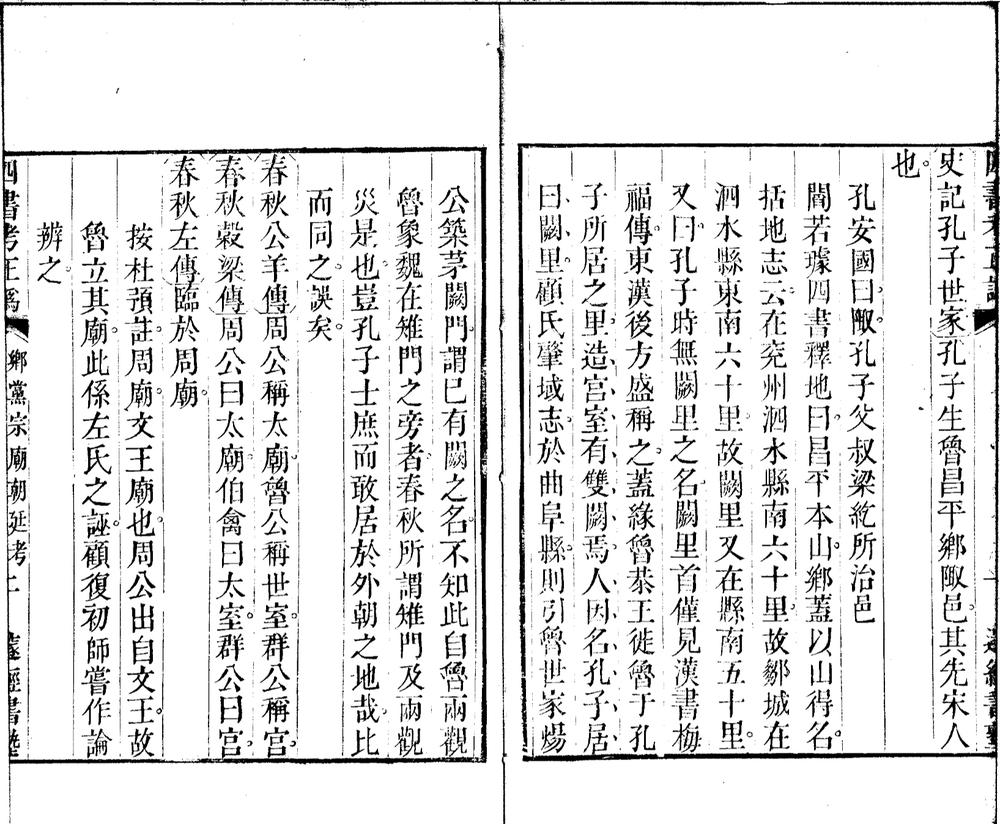 史記孔子世家孔子生魯昌平鄉陬邑其先宋人
也
孔安國曰陬孔子父叔梁紇所治邑
閻若璩四書釋地曰昌平本山鄉蓋以山得名
括地志云在兖州泗水縣南六十里故鄒城在
泗水縣東南六十里故闕里又在縣南五十里
又曰孔子時無闕里之名闕里首僅見漢書梅
福傳東漢後方盛稱之蓋緣魯恭王徙魯于孔
子所居之里造宮室有雙闕焉人因名孔子居
曰闕里顧氏肇域志於曲阜縣則引魯世家煬
公築茅闕門謂已有闕之名不知此自魯兩觀
魯象魏在雉門之旁者春秋所謂雉門及兩觀
災是也豈孔子士庶而敢居於外朝之地哉比
而同之誤矣
春秋公羊傳周公稱太廟魯公稱世室群公稱宮
春秋穀梁傳周公曰太廟伯禽曰太室群公曰宮
春秋左傳臨於周廟
按杜預註周廟文王廟也周公出自文王故
魯立其廟此係左氏之誣顧復初師嘗作論
辨之
四書考正譌
鄉黨宗廟朝廷考二